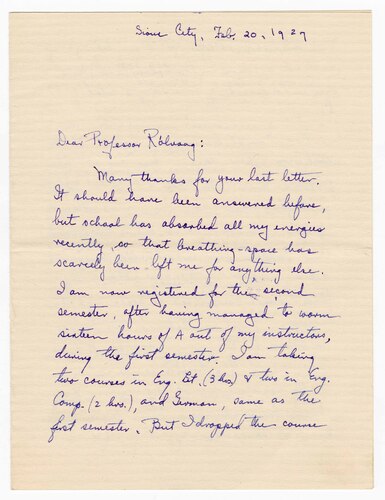 Sioux City, Feb. 20, 1927
Dear Professor Rölvaag:
Many thanks for your last letter.
It should have been answered before,
but school has absorbed all my energies
recently so that breathing-space has
scarcely been left me for anything else.
I am now registered for the second
semester, after having managed to worm
sixteen hours of A out of my instructors,
during the first semester. I am taking
two courses in Eng. Lit. (3 hrs.) & two in Eng.
Comp. (2 hrs.), and German, same as the
first semester. But I dropped the course